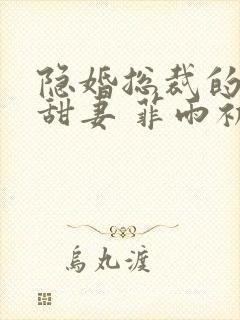 隐婚总裁的
甜妻 菲雨初
烏丸渡